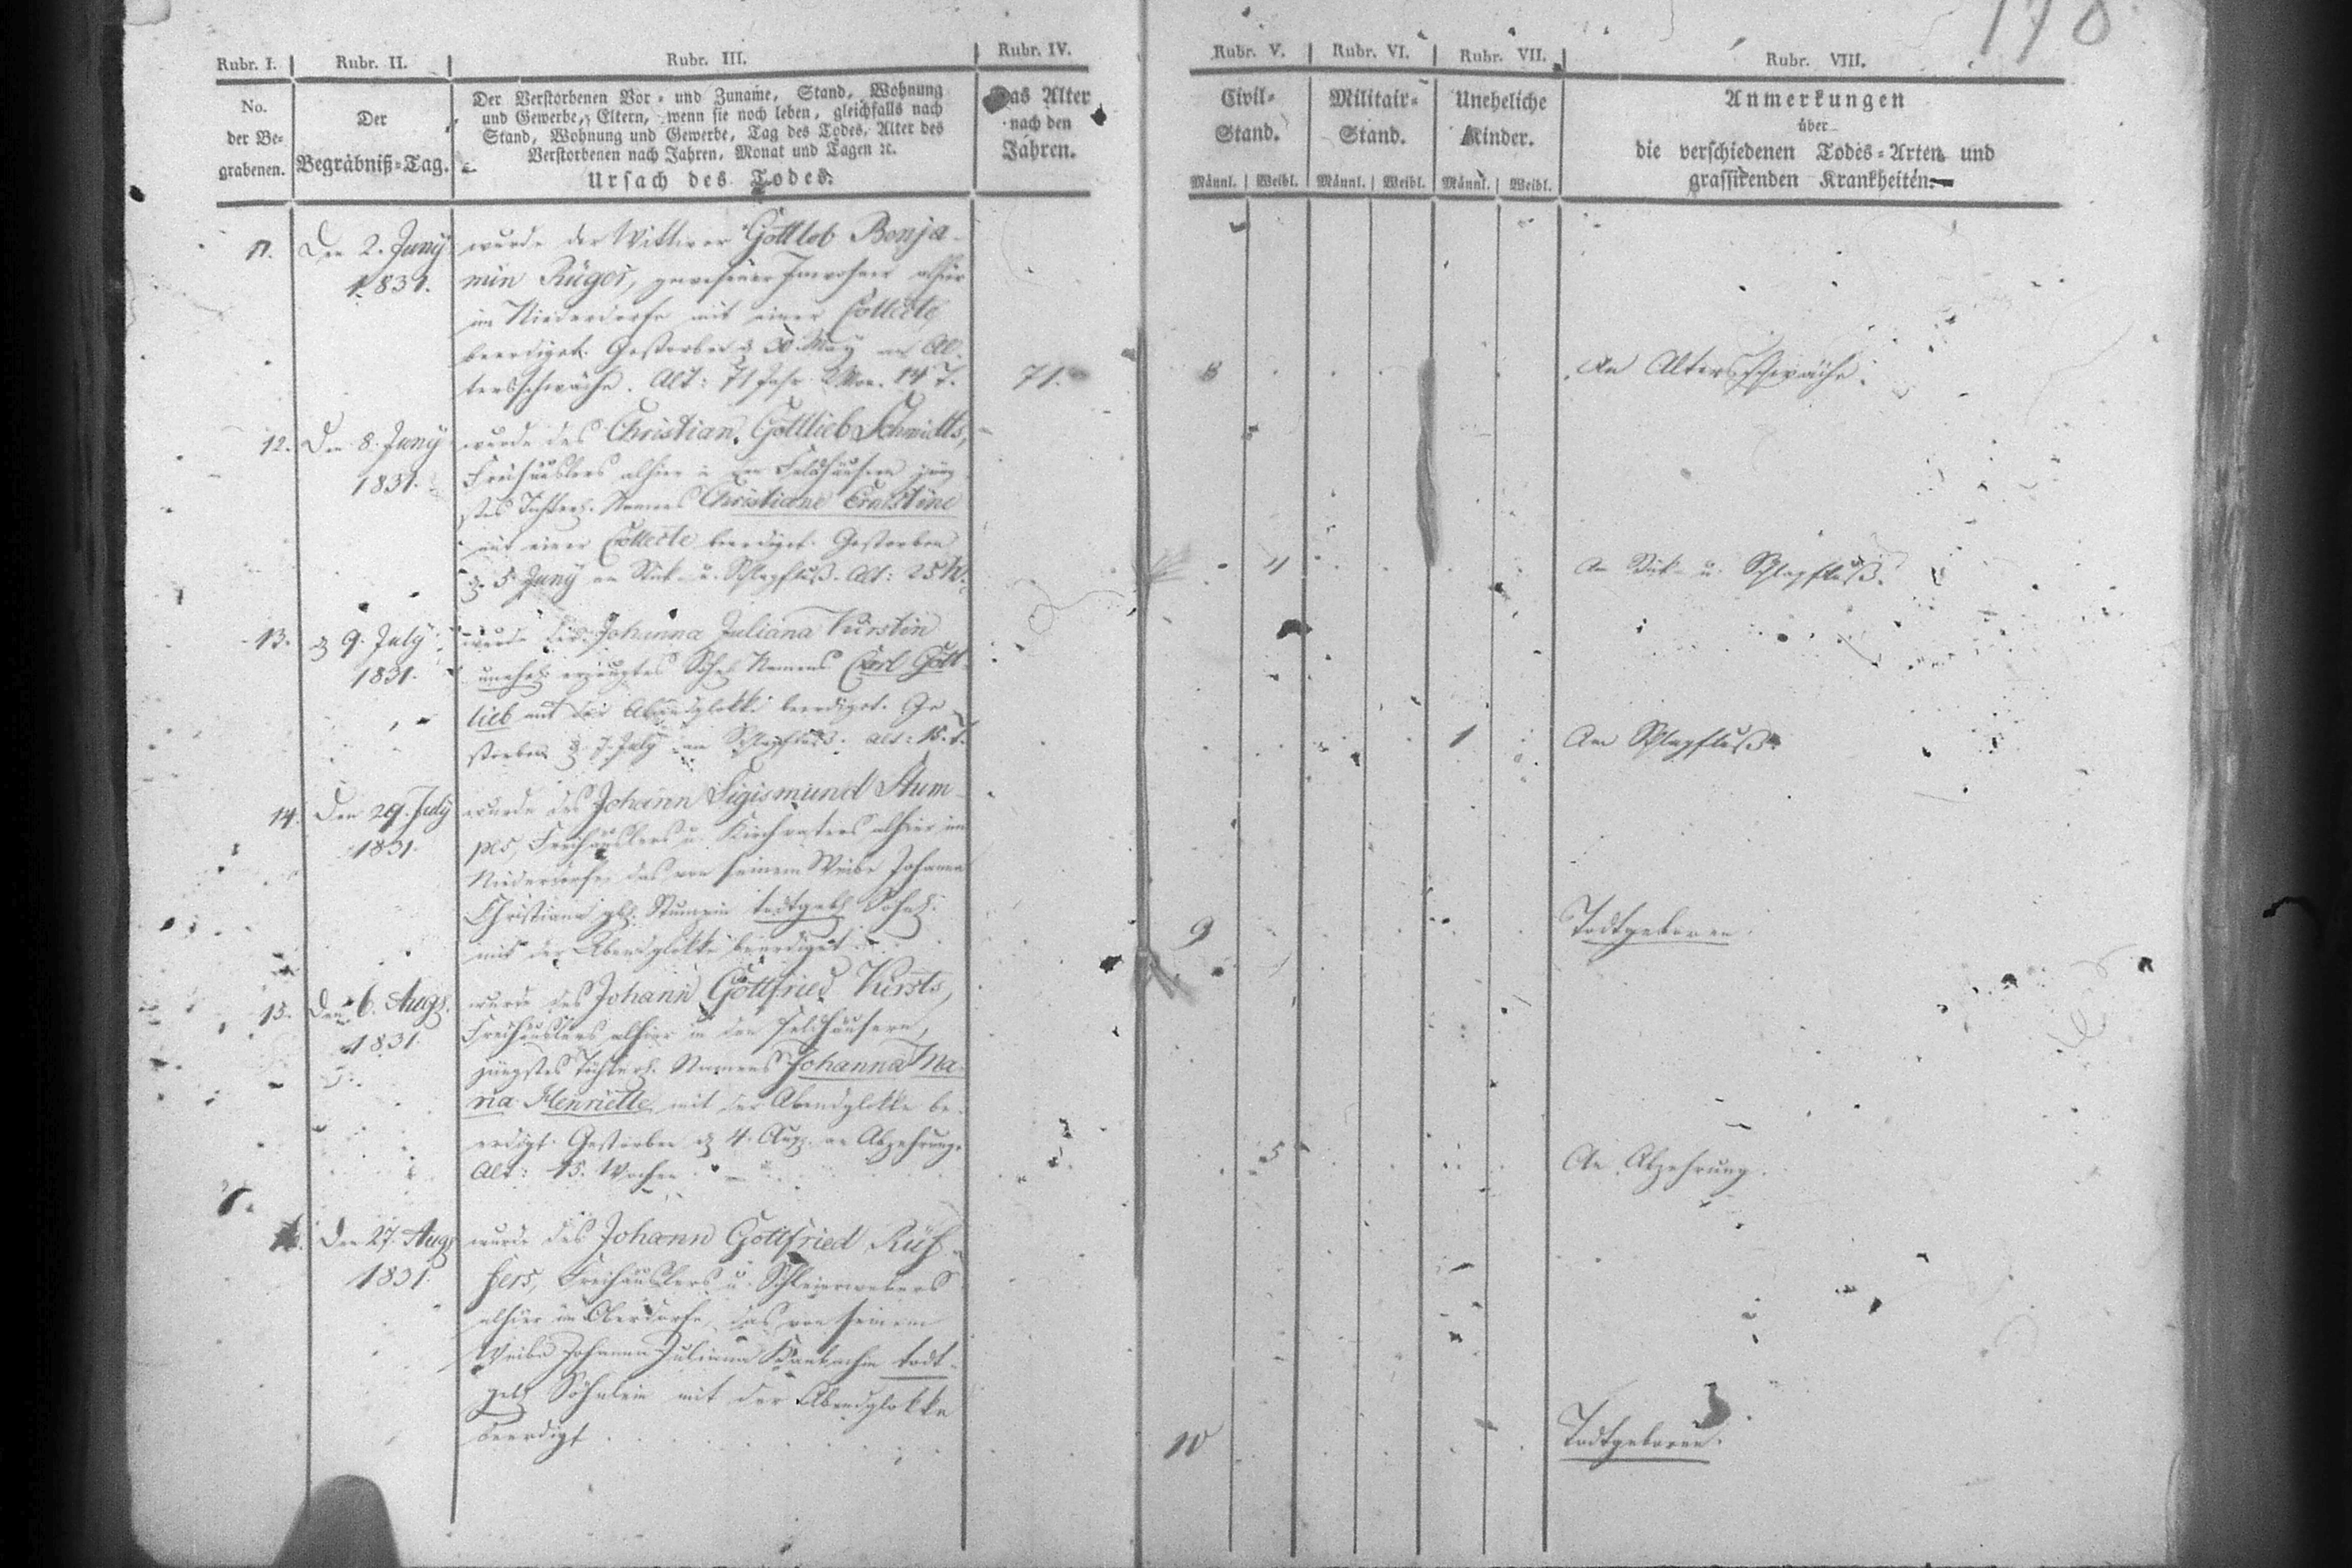 178
Rubr. I. Rubr. II. Rubr. III. Rubr. IV. Rubr. V. Rubr. VI. Rubr. VII. Rubr. VIII.
No.
der Be-
grabenen.
Der
Begräbniß-Tag.
Der Verstorbenen Vor- und Zuname, Stand, Wohnung
und Gewerbe, Eltern, wenn sie noch leben, gleichfalls nach
Stand, Wohnung und Gewerbe, Tag des Todes, Alter des
Verstorbenen nach Jahren, Monat und Tagen ꝛc.
Ursach des Todes.
Das Alter
nach den
Jahren.
Civil-
Stand.
Männl. Weibl.
Militair-
Stand.
Männl. Weibl.
Uneheliche
Kinder.
Männl. Weibl.
Anmerkungen
über
die verschiedenen Todes-Arten und
grassirenden Krankheiten.
11. Den 2. Juny
1831.
wurde der Wittwer Gottlob Benja-
min Rüger, gewesener Inwohner alhier
im Niederdorfe mit einer Collecte
beerdiget. Gestorben d. 30. May an Al-
tersschwäche. Alt: 71 Jahr 2 Mon. 14 T.
71. 8 An Altersschwäche.
12. Den 8. Juny
1831.
wurde des Christian Gottlieb Schmidts,
Freihäuslers alhier in den Feldhäusern jüng-
stes Töchterl. Namens Christiane Ernstine
mit einer Collecte beerdiget. Gestorben
d. 5 Juny an Stick- u. Schlagfluß. Alt: 25 W.
4 An Stick- u. Schlagfluß.
13. d 9. July
1831.
wurde der Johanna Juliana Kürstin
unehel. erzeugtes Söhnl. Namens Carl Gott-
lieb mit der Abendglokke beerdiget. Ge-
storben d. 7. July am Schlagfluß. Alt: 18. T.
1 Am Schlagfluß.
14. Den 29. July
1831.
wurde des Johann Sigismund Stum-
pes, Freihäuslers u. Kirchvaters alhier im
Niederdorfe, das von seinem Weibe Johanna
Christiana geb. Stumpin todtgeb. Söhnl.
mit der Abendglokke beerdiget.
9 Todtgeboren.
15. Den 6. Aug.
1831.
wurde des Johann Gottfried Kürsts,
Freihäuslers alhier in den Feldhäusern,
jüngstes Töchterl. Namens Johanna Ma-
ria Henriette mit der Abendglokke be-
erdigt. Gestorben d 4. Aug. an Abzehrung.
Alt: 15. Wochen.
5 An Abzehrung.
16. Den 27. Aug.
1831.
wurde des Johann Gottfried Rüf-
fers, Freihäuslers u. Schleierwebers
alhier im Oberdorfe, das von seinem
Weibe Johanna Juliana todt-
geb. Söhnlein mit der Abendglokke
beerdigt.
10 Todtgeboren.